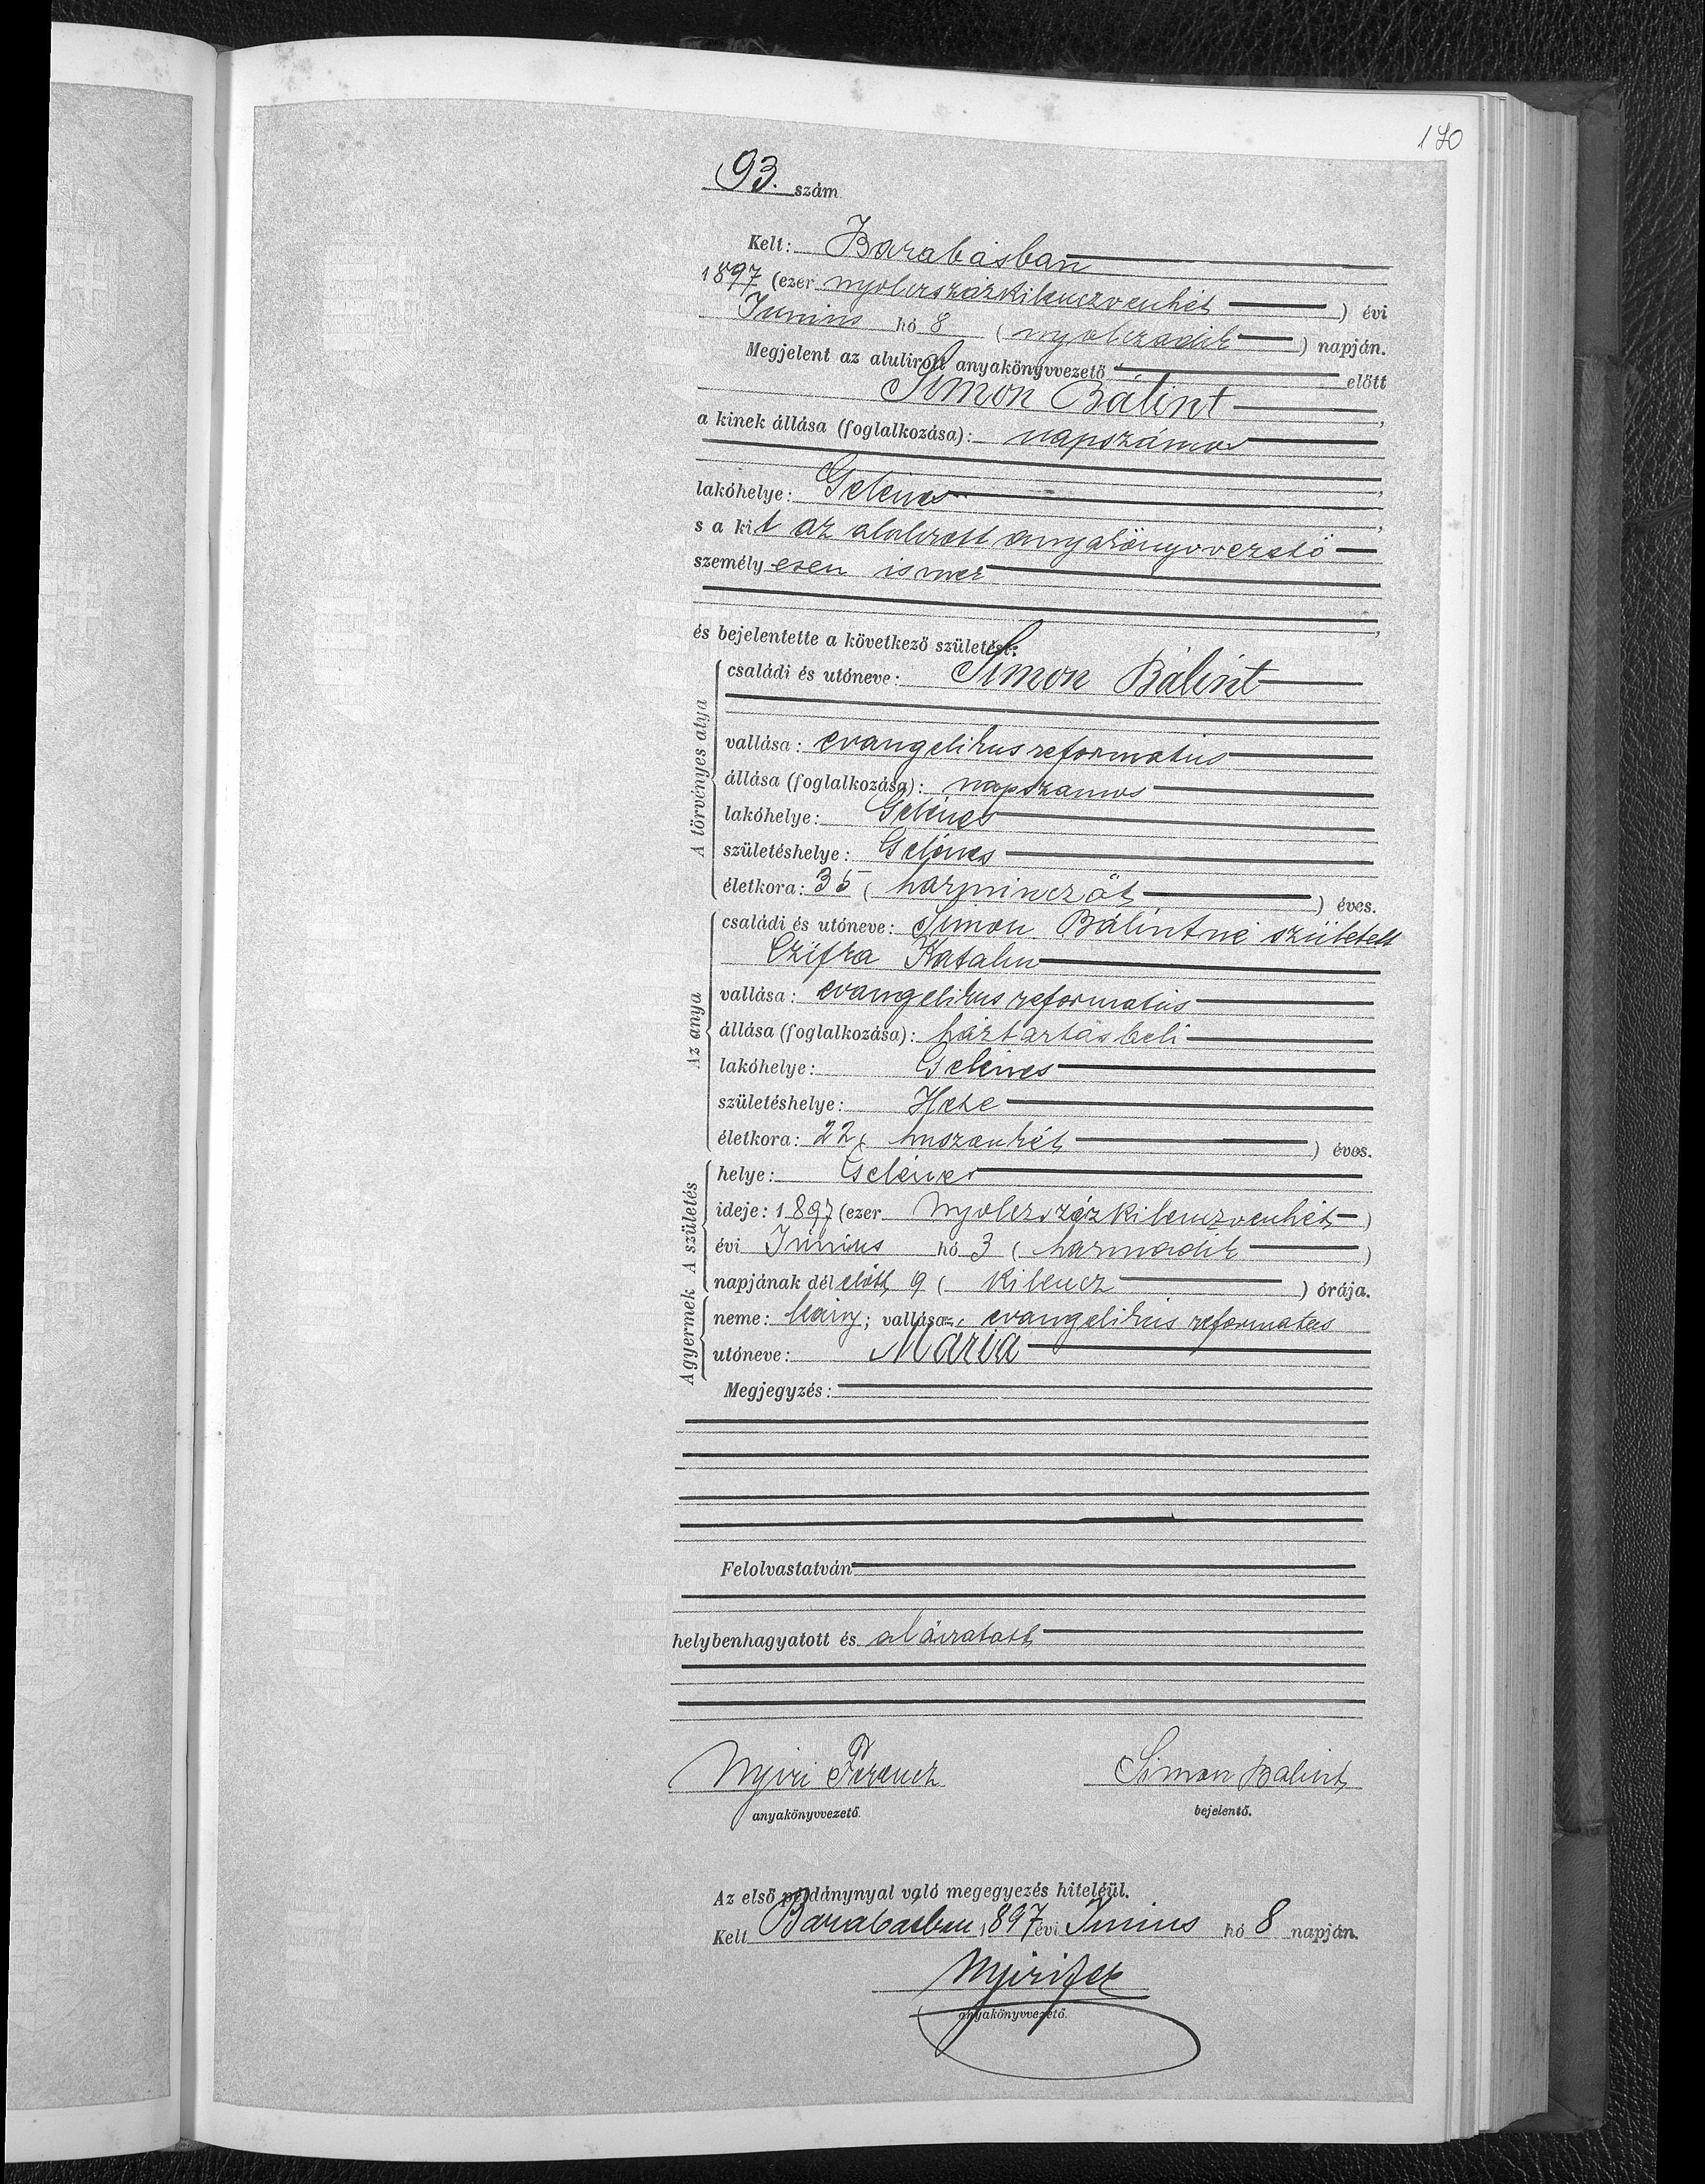 170
93. szám
Kelt: Barabásban
1897 (ezer nyolcszázkilenczvenhét ) évi
Junius hó 8 ( nyolczadik ) napján.
Megjelent az alulirott anyakönyvvezető előtt
Simon Bálint ,
a kinek állása (foglalkozása): napszámos
,
lakóhelye: Gelénes
,
s a kit az alulirott anyakönyvvezető
személyesen ismer
,
és bejelentette a következő születést:
A törvényes atya
családi és utóneve: Simon Bálint
vallása: evangelikus reformatus
állása (foglalkozása): napszamos
lakóhelye: Gelénes
születéshelye: Gelénes
életkora: 35 ( harmincz öt ) éves.
Az anya
családi és utóneve: Simon Bálintné született
Czifra Katalin
vallása: evangelikus reformatus
állása (foglalkozása): háztartásbeli
lakóhelye: Gelénes
születéshelye: Hete
életkora: ( huszonhét ) éves.
A születés
helye: Gelénes
ideje: 1897 (ezer nyolcszázkilenczvenhét )
évi Junius hó 3 ( harmadik )
napjának délelőtt 9 ( kilencz ) órája.
A gyermek
neme: leány; vallása: evangelikus reformatus
utóneve: Mária
Megjegyzés:
Felolvastatván
helybenhagyatott és aláiratott
Nyiri Ferencz Simon Balint
anyakönyvvezető. bejelentő.
Az első példánynyal való megegyezés hiteléül.
Kelt Barabásban 1897 évi Junius hó 8 napján.
Nyiri
anyakönyvvezető.